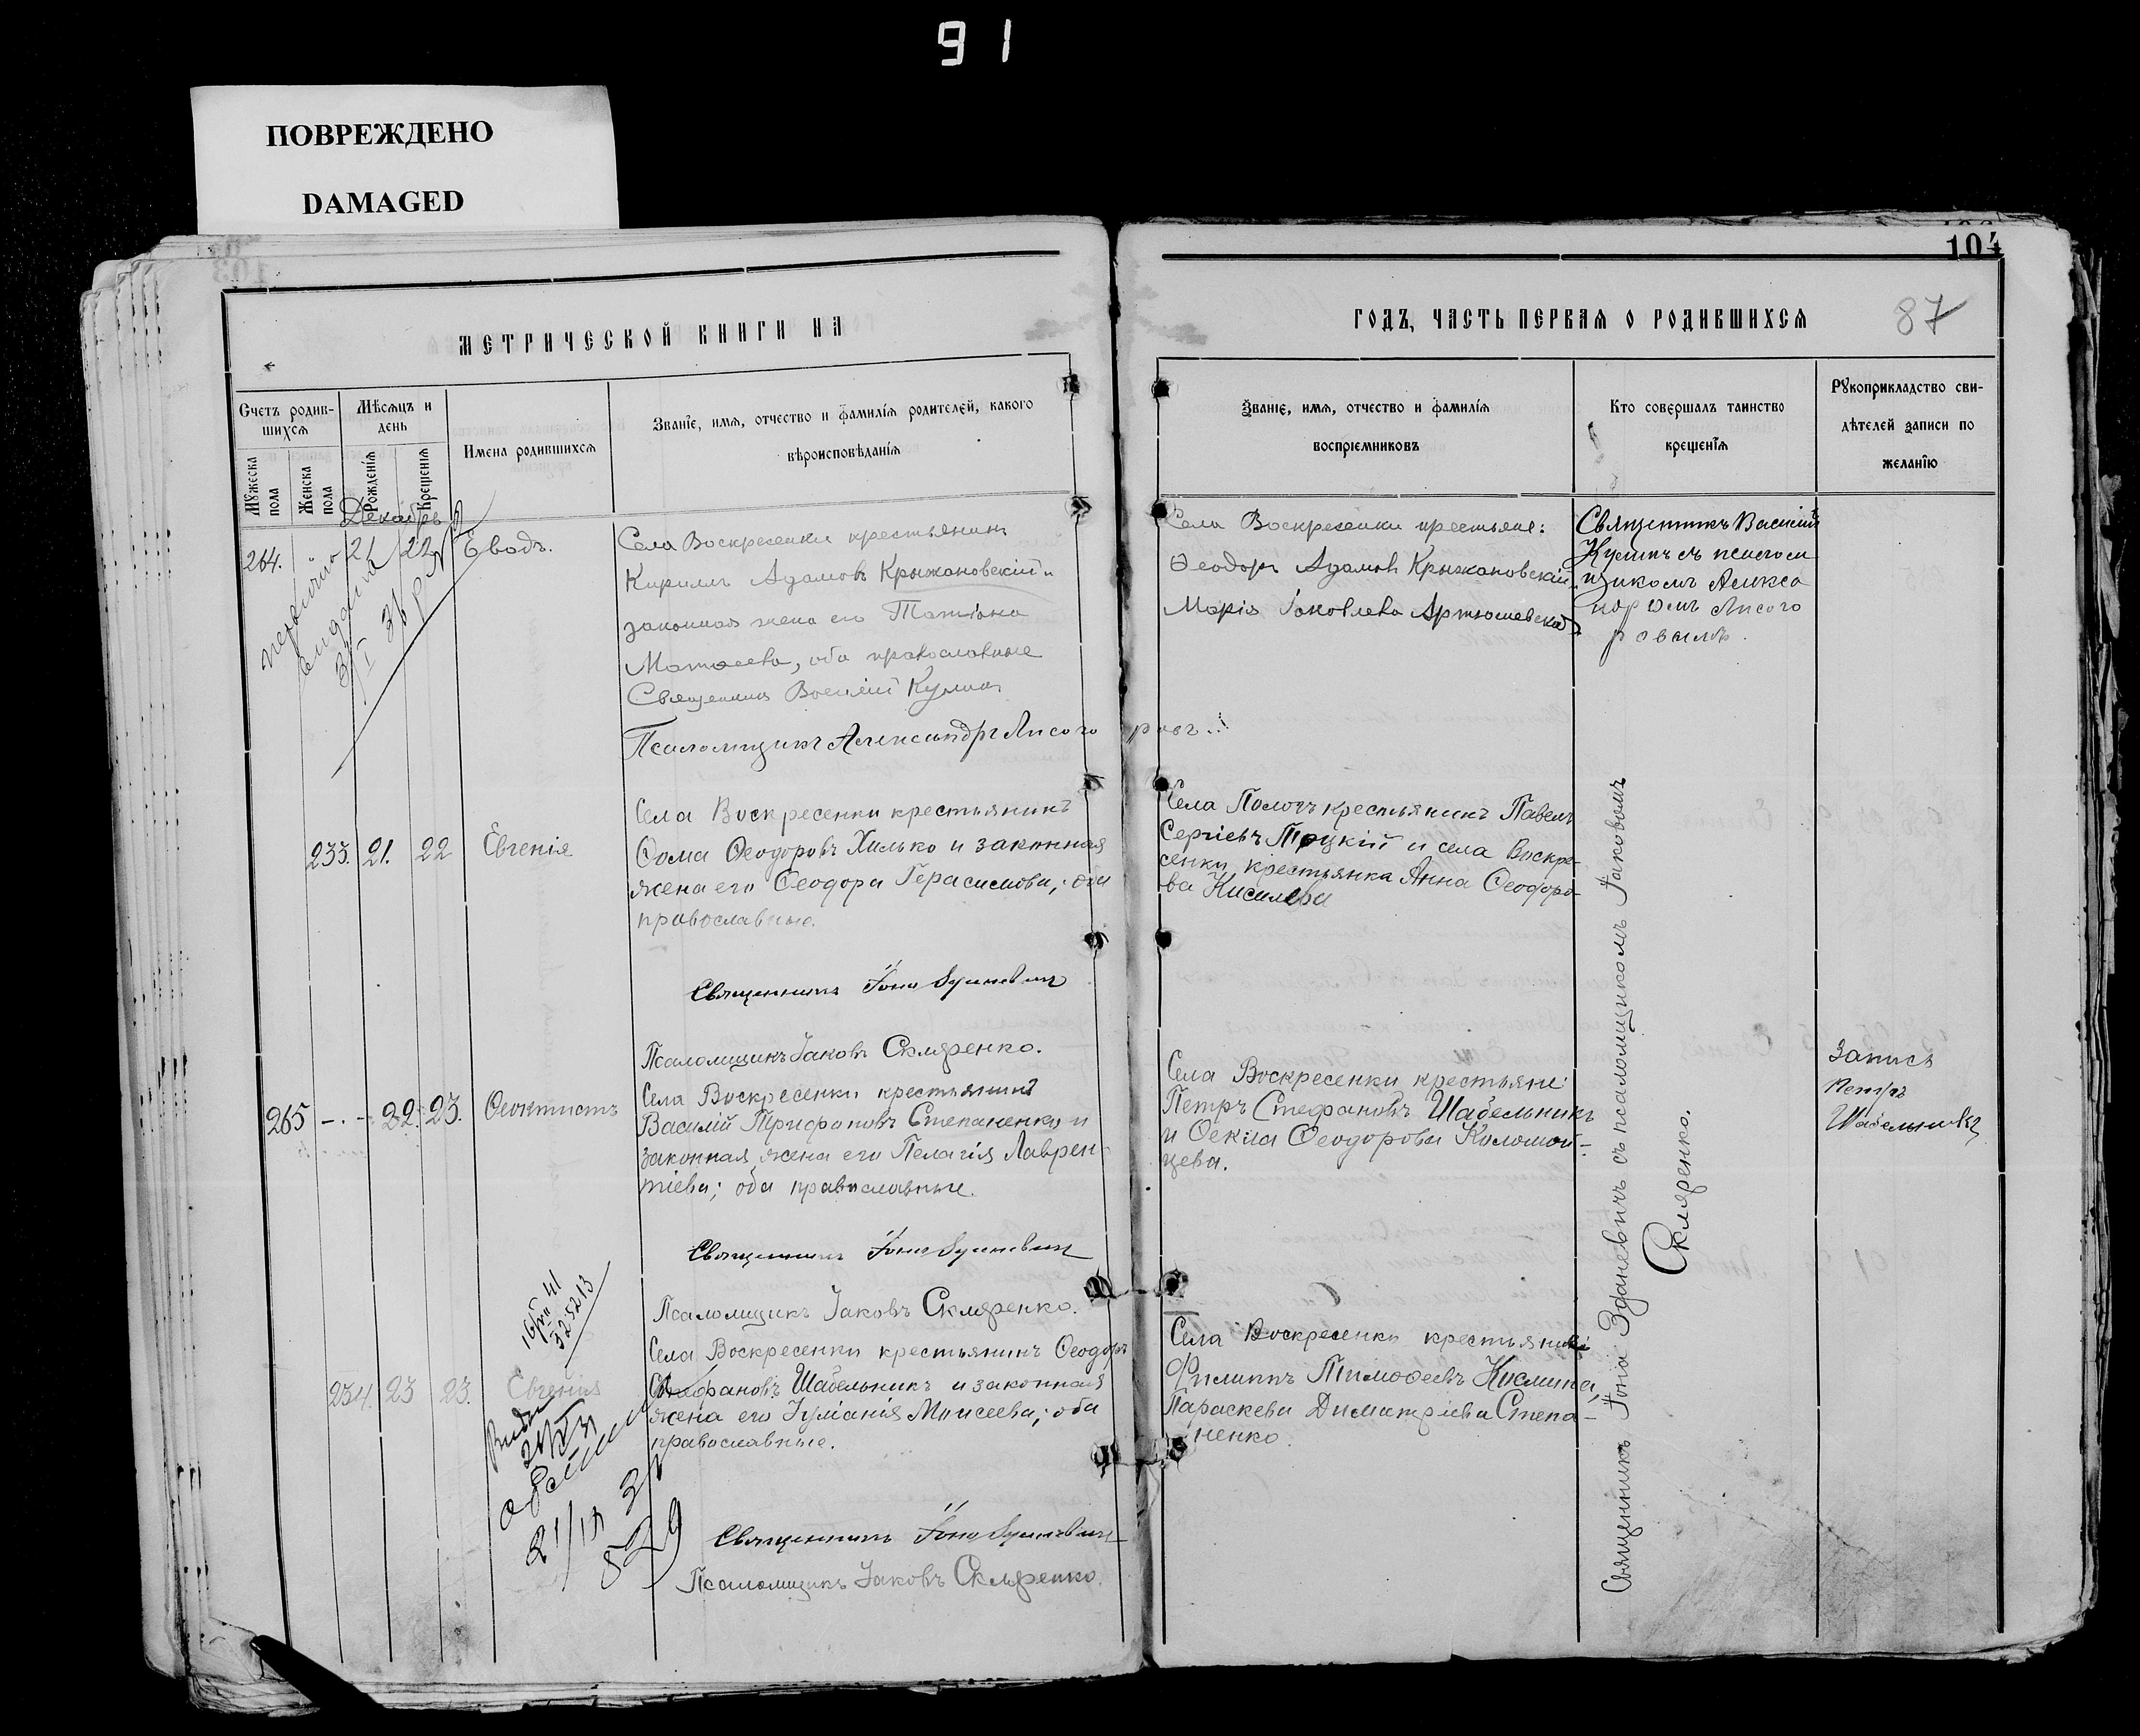 91
ПОВРЕЖДЕНО
DAMAGED
104
МЕТРИЧЕСКОЙ КНИГИ НА
ГОДЪ, ЧАСТЬ ПЕРВАЯ О РОДИВШИХСЯ
87
Счетъ родив-
шихся
Мужеска пола
Женска пола
Мѣсяцъ и
день
Рожденія
Крещенія
Имена родившихся
Званіе, имя, отчество и фамилія родителей, какого
вѣроисповѣданія
Званіе, имя, отчество и фамилія
воспріемниковъ
Кто совершалъ таинство
крещенія
Рукоприкладство сви-
дѣтелей записи по
желанію
Декабрь
264. 21 22 Еводъ.
Села Воскресенки крестьянинъ
Кирилъ Адамовъ Крыжановскій и
законная жена его Татіана
Матѳеева, оба православные
Священникъ Василій
Псаломщикъ Александръ Лисого
ровъ.
Села Воскресенки крестьяне:
Ѳеодоръ Адамовъ Крыжановскій
Марія Іаковлева Артюшевская
Священникъ Василій
233. 21. 22 Евгенія
Села Воскресенки крестьянинъ
Ѳома Ѳеодоровъ Хилько и законная
жена его Ѳеодора Герасимова; оба
православные.
Священникъ Іона Зданевич
Псаломщикъ Іаковъ Скляренко.
Села Пологъ крестьянинъ Павелъ
Сергіевъ Троцкій и села Воскре-
сенки крестьянка Анна Ѳеодоро-
ва Кисилева
265 - . - 22. 23. Ѳеоктистъ
Села Воскресенки крестьянинъ
Василій Трифоновъ Степаненко и
законная жена его Пелагія Лаврен-
тіева; оба православные.
Священникъ Іона Зданевич
Псаломщикъ Іаковъ Скляренко.
Села Воскресенки крестьяне:
Петръ Стефановъ Шабельникъ
и Ѳекла Ѳеодорова Коломой-
цева.
Петръ
Шабельникъ
234. 23 23. Евгенія
Села Воскресенки крестьянинъ Ѳеодоръ
Стефановъ Шабельникъ и законная
жена его Іуліанія Моисеева; оба
православные.
Священникъ Іона Зданевич
Псаломщикъ Іаковъ Скляренко.
Села Воскресенки
Филиппъ Тимоѳеевъ
Параскева Димитріева Степа-
ненко.
Священникъ Іона Зданевичъ съ псаломщикомъ Іаковомъ
Скляренко.